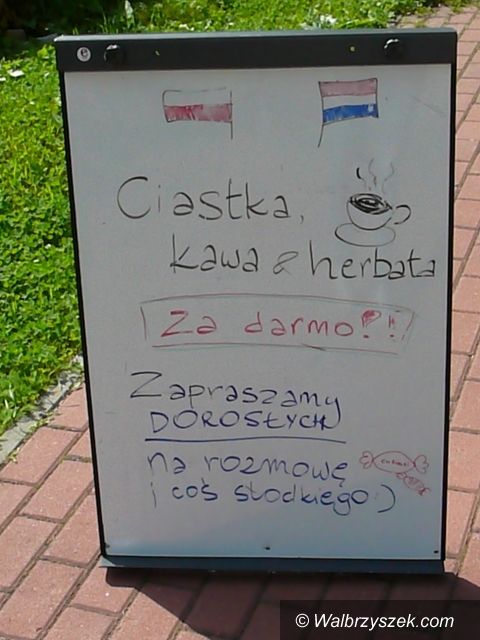 Ciastka,
kawa & herbata
Za darmo!!!
Zapraszamy
DOROSŁYCH
na rozmowę
i coś słodkiego :)
© Walbrzyszek.com